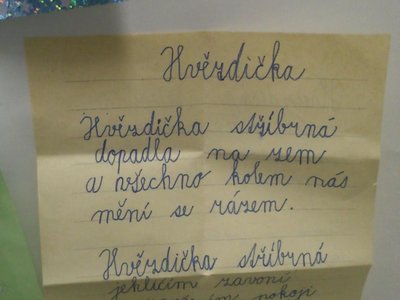 Hvězdička
Hvězdička stříbrná
dopadla na zem
a všechno kolem nás
mění se rázem.
Hvězdička stříbrná
jehličím zavoní
pokoji